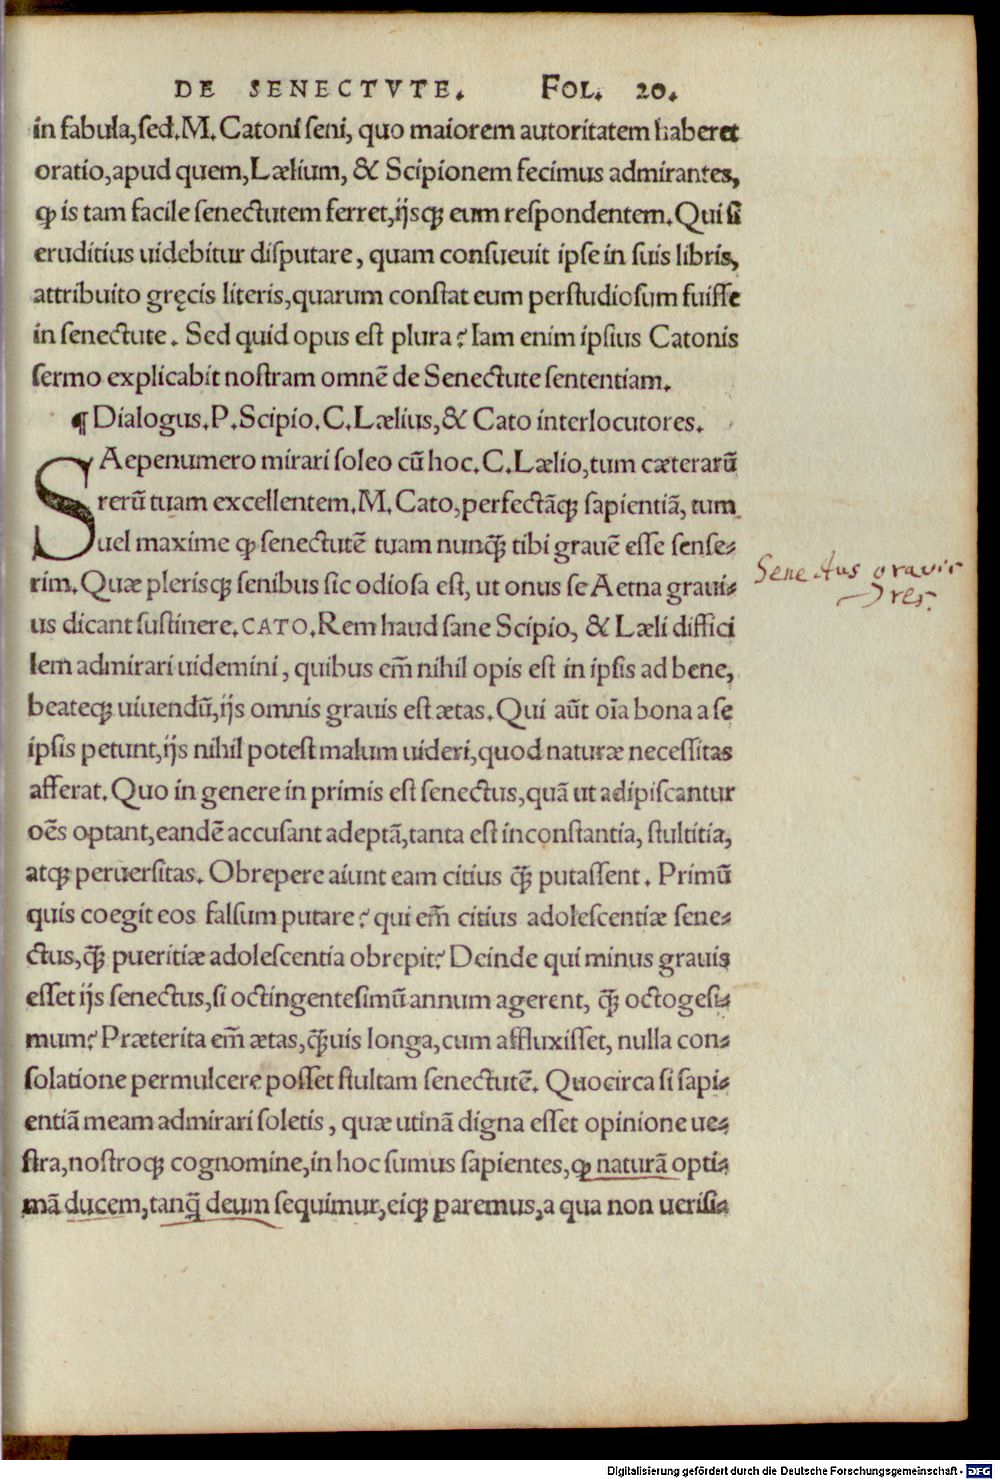 DE SENECTVTE. FOL. 20.
in fabula,sed.M.Catoni seni, quo maiorem autoritatem haberet
oratio,apud quem,Lælium, & Scipionem fecimus admirantes,
ꝙ is tam facile senectutem ferret,ijsqꝫ eum respondentem.Qui si
eruditius uidebitur disputare, quam consueuit ipse in suis libris,
attribuito gręcis literis,quarum constat eum perstudiosum fuisse
in senectute. Sed quid opus est plura? Iam enim ipsius Catonis
sermo explicabit nostram omnē de Senectute sententiam.
¶ Dialogus.P.Scipio.C.Lælius,& Cato interlocutores.
SAepenumero mirari soleo cū hoc.C.Lælio,tum cæterarū
rerū tuam excellentem.M.Cato,perfectāqꝫ sapientiā, tum
uel maxime ꝙ senectutē tuam nunq̄ꝫ tibi grauē esse sense⸗
rim.Quæ plerisqꝫ senibus sic odiosa est, ut onus se Aetna graui⸗
us dicant sustinere.CATO.Rem haud sane Scipio, & Læli diffici
lem admirari uidemini, quibus em̄ nihil opis est in ipsis ad bene,
beateqꝫ uiuendū,ijs omnis grauis est ætas.Qui aūt oīa bona a se
ipsis petunt,ijs nihil potest malum uideri,quod naturæ necessitas
afferat.Quo in genere in primis est senectus,quā ut adipiscantur
oēs optant,eandē accusant adeptā,tanta est inconstantia, stultitia,
atqꝫ peruersitas. Obrepere aiunt eam citius q̄ꝫ putassent. Primū
quis coegit eos falsum putare? qui em̄ citius adolescentiæ sene⸗
ctus,q̄ꝫ pueritiæ adolescentia obrepit? Deinde qui minus grauis
esset ijs senectus,si octingentesimū annum agerent, q̄ꝫ octogesi⸗
mum? Præterita em̄ ætas,q̄ꝫuis longa,cum affluxisset, nulla con⸗
solatione permulcere posset stultam senectutē. Quocirca si sapi⸗
entiā meam admirari soletis, quæ utinā digna esset opinione ue⸗
stra,nostroqꝫ cognomine,in hoc sumus sapientes,ꝙ naturā opti⸗
mā ducem,tanq̄ deum sequimur,eiqꝫ paremus,a qua non uerisi⸗
Senectus gravis
res.
Digitalisierung gefördert durch die Deutsche Forschungsgemeinschaft - DFG